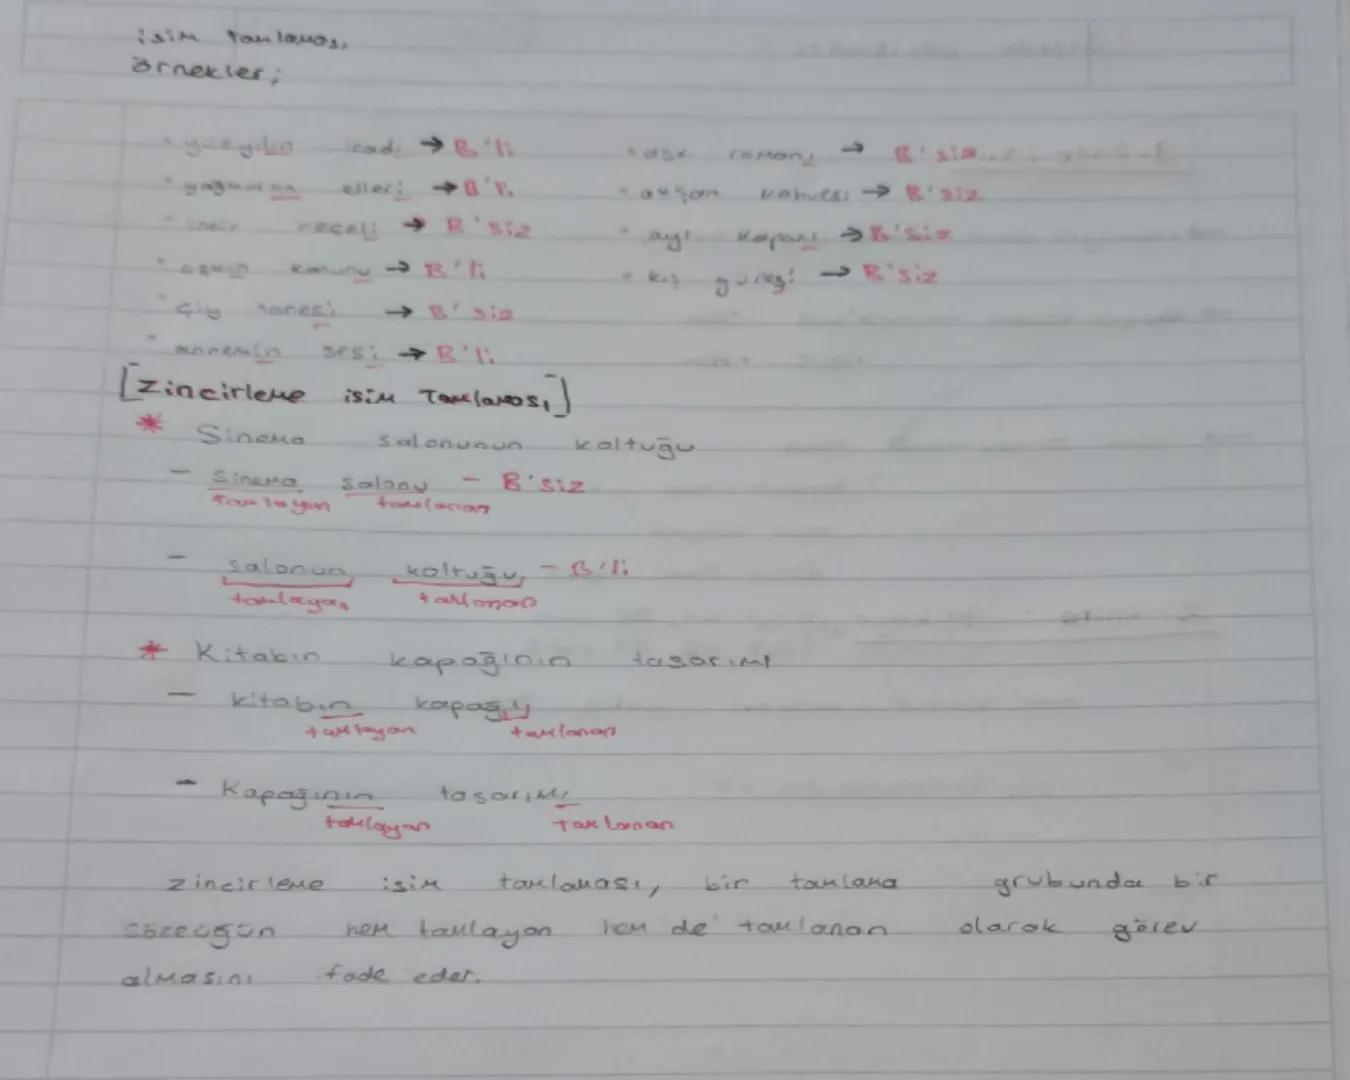 isim Tamlaması
örnekler;
yüzyılın icadı → B'li
yağmurun elleri → B'li
incir reçeli → B'siz
aşkın kanunu → B'li
çiy tanesi → B'siz
annemin sesi → B'li
aşk romanı → B'siz
akşam kahvesi → B'siz
ayı kapanı → B'siz
kış güneşi → B'siz
[Zincirleme isim Tamlaması]
* Sinema salonunun koltuğu
- Sinema salonu - B'siz
Tamlayan tamlanan
- salonun koltuğu - B'li
tamlayan tamlanan
* Kitabın kapağının tasarımı
- kitabın kapağı
tamlayan tamlanan
- Kapağının tasarımı
tamlayan Tamlanan
zincirleme isim tamlaması, bir tamlama grubunda bir
sözcüğün hem tamlayan hem de tamlanan olarak görev
almasını ifade eder.